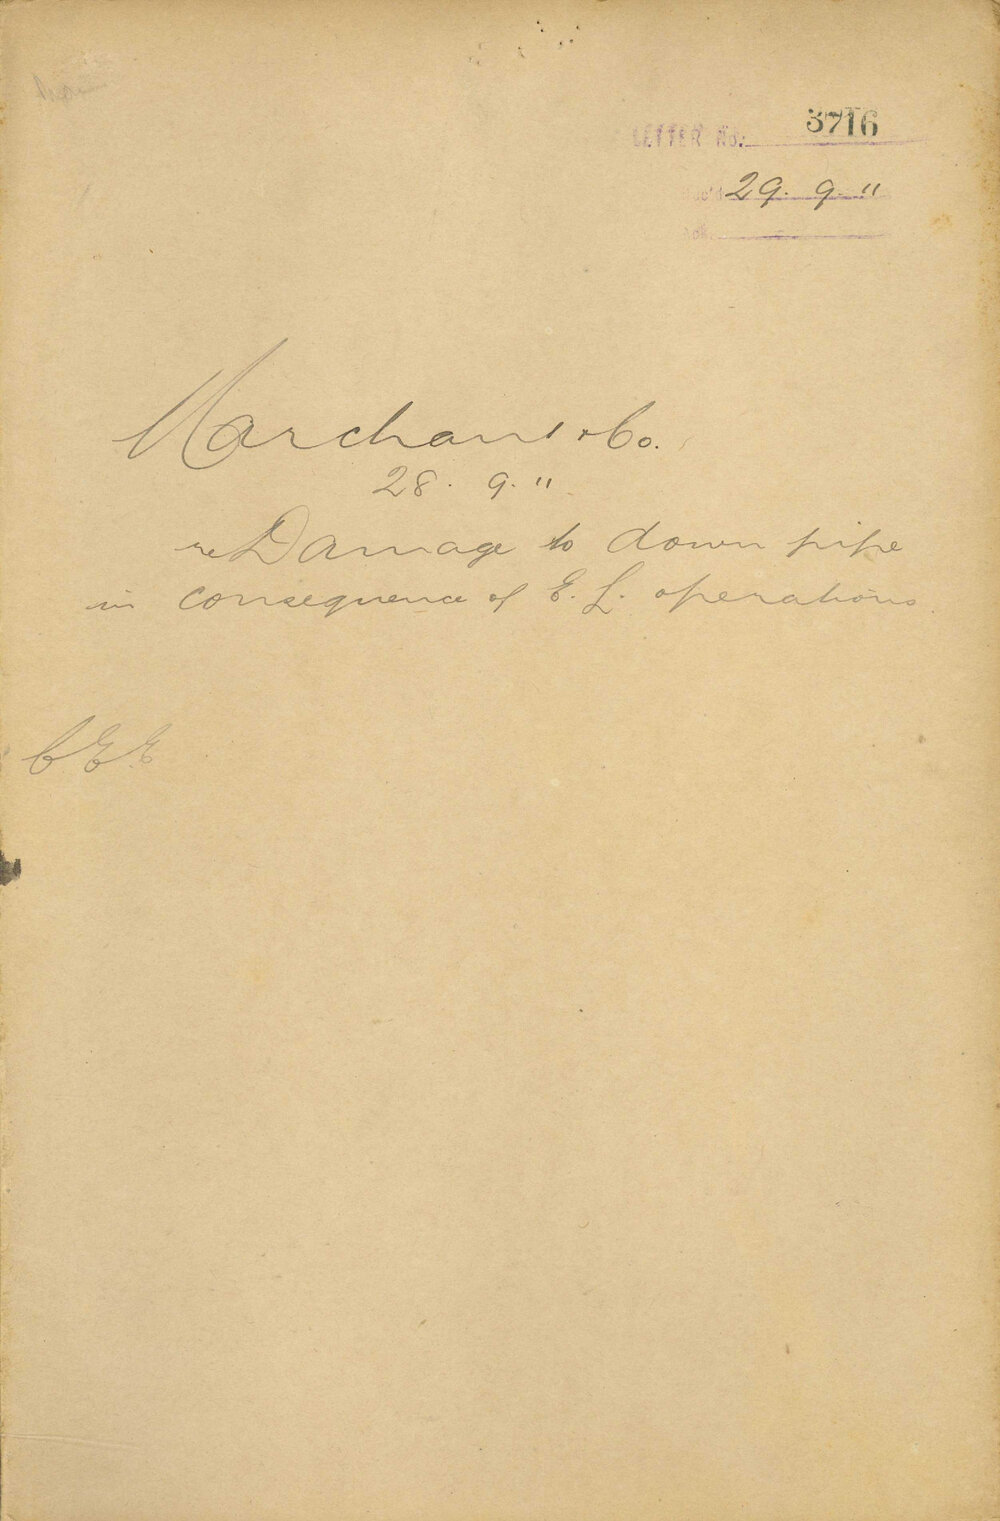 LETTER No. 3716
Rec'd 29. 9. 11
Marchant & Co.
28. 9. 11
re Damage to down pipe
in consequence of E. L. operations.
C E E